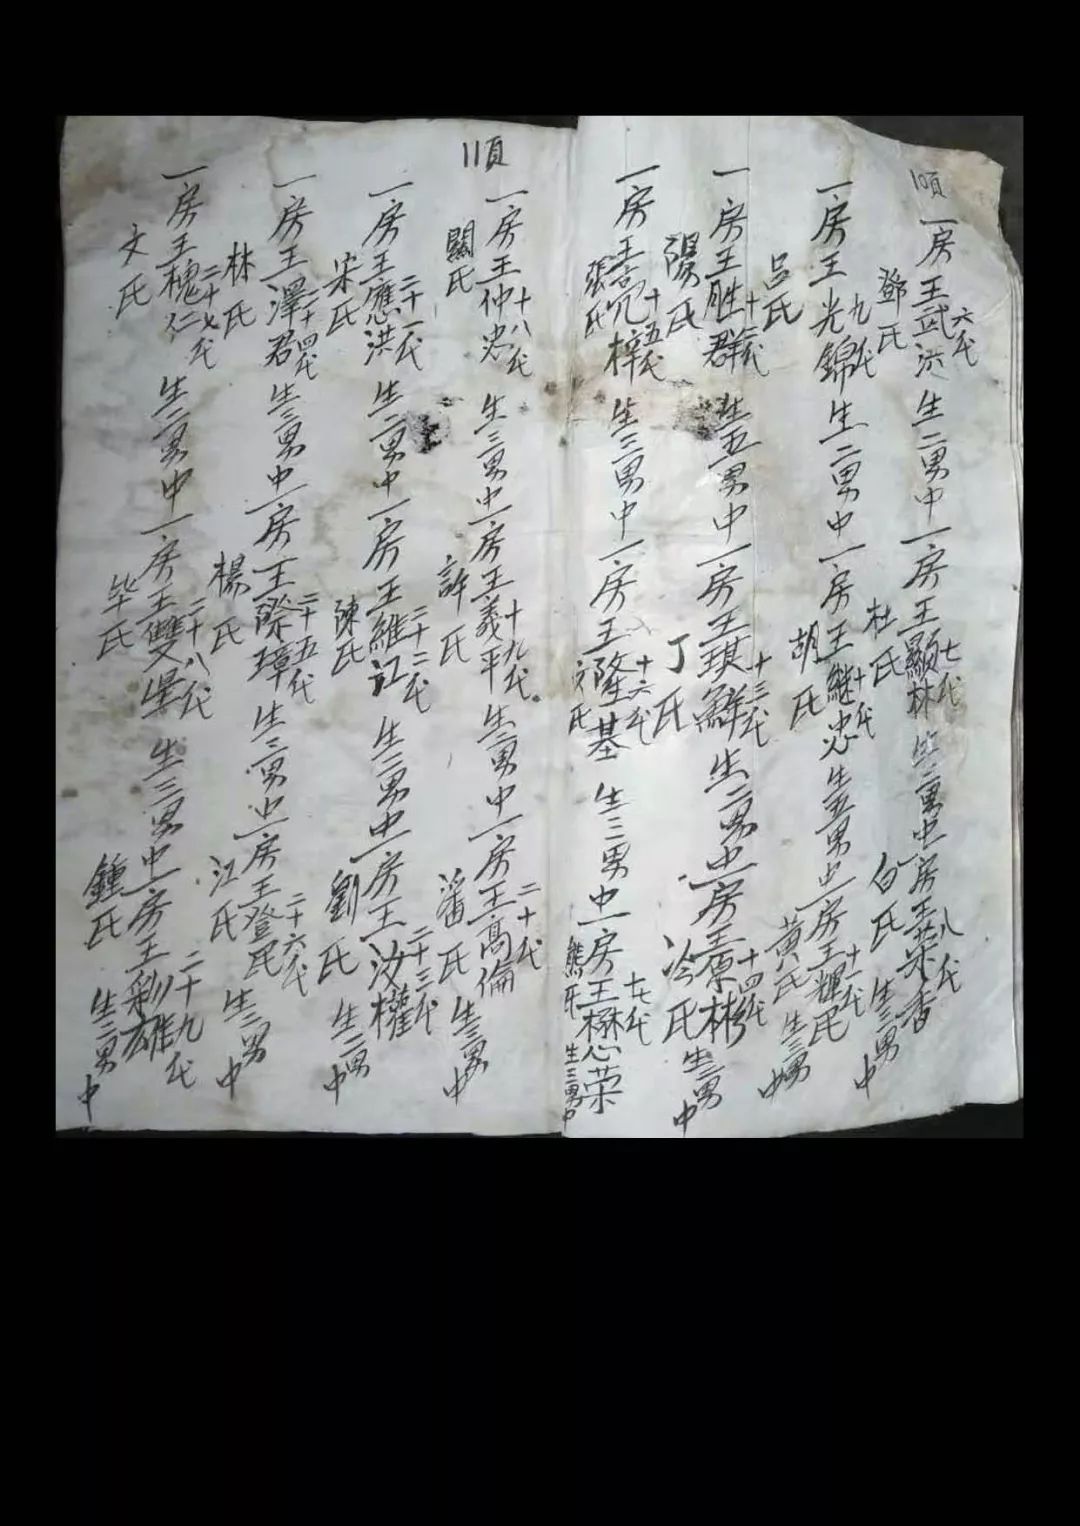 10頁
一房王武洪 六代 鄧氏 生二男中一房王顯林 七代 杜氏 生二男中一房王荣香 八代 白氏 生三男中
一房王光錦 九代 呂氏 生二男中一房王継忠 十代 胡氏 生五男中一房王輝民 十一代 黃氏 生三男中
一房王胜群 十二代 陽氏 生五男中一房王琪鮮 十三代 丁氏 生二男中一房王原彬 十四代 冷氏 生三男中
一房王冠梓 十五代 張氏 生三男中一房王隆基 十六代 生三男中一房王懋荣 十七代 熊氏 生三男中
11頁
一房王仲忠 十八代 關氏 生三男中一房王義平 十九代 許氏 生二男中一房王高倫 二十代 潘氏 生三男中
一房王應洪 二十一代 宋氏 生二男中一房王維江 二十二代 陳氏 生三男中一房王汝權 二十三代 劉氏 生二男中
一房王澤君 二十四代 林氏 生三男中一房王際璋 二十五代 楊氏 生三男中一房王登民 二十六代 江氏 生二男中
一房王槐仁 二十七代 文氏 生二男中一房王雙星 二十八代 毕氏 生三男中一房王彩雄 二十九代 鍾氏 生二男中